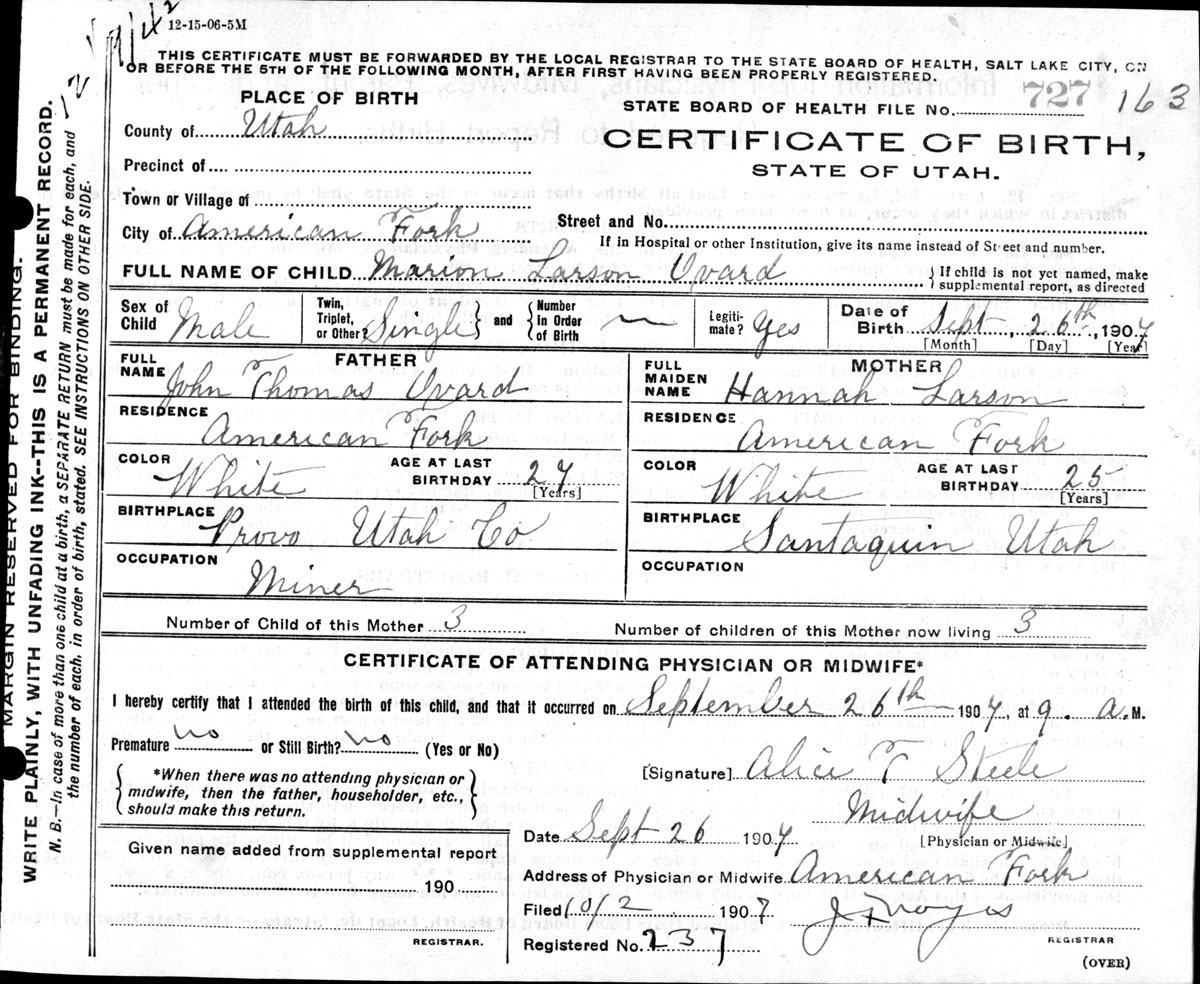 12-15-06-5M
THIS CERTIFICATE MUST BE FORWARDED BY THE LOCAL REGISTRAR TO THE STATE BOARD OF HEALTH, SALT LAKE CITY, ON
OR BEFORE THE 5TH OF THE FOLLOWING MONTH, AFTER FIRST HAVING BEEN PROPERLY REGISTERED.
PLACE OF BIRTH
STATE BOARD OF HEALTH FILE No. 727 163
County of Utah
CERTIFICATE OF BIRTH,
STATE OF UTAH.
Precinct of
Town or Village of
City of American Fork
Street and No.
If in Hospital or other Institution, give its name instead of Street and number.
FULL NAME OF CHILD Marion Larson Ovard
If child is not yet named, make
supplemental report, as directed
Sex of Child Male
Twin, Triplet, or Other? Single
and
Number in Order of Birth
Legiti-mate? Yes
Date of Birth Sept 26th, 1907
[Month] [Day] [Year]
FATHER
FULL NAME John Thomas Ovard
RESIDENCE American Fork
COLOR White
AGE AT LAST BIRTHDAY 27
[Years]
BIRTHPLACE Provo Utah Co
OCCUPATION Miner
MOTHER
FULL MAIDEN NAME Hannah Larson
RESIDENCE American Fork
COLOR White
AGE AT LAST BIRTHDAY 25
[Years]
BIRTHPLACE Santaquin Utah
OCCUPATION
Number of Child of this Mother 3
Number of children of this Mother now living 3
CERTIFICATE OF ATTENDING PHYSICIAN OR MIDWIFE*
I hereby certify that I attended the birth of this child, and that it occurred on September 26th 1907, at 9. a.M.
Premature no or Still Birth? no (Yes or No)
*When there was no attending physician or
midwife, then the father, householder, etc.,
should make this return.
[Signature] Alice T Steele
Midwife
[Physician or Midwife]
Date Sept 26 1907
Given name added from supplemental report
190
REGISTRAR.
Address of Physician or Midwife American Fork
Filed 10/2 1907
Registered No. 237
REGISTRAR
(OVER)
MARGIN RESERVED FOR BINDING.
WRITE PLAINLY, WITH UNFADING INK--THIS IS A PERMANENT RECORD.
N. B.—In case of more than one child at a birth, a SEPARATE RETURN must be made for each, and
the number of each, in order of birth, stated. SEE INSTRUCTIONS ON OTHER SIDE.